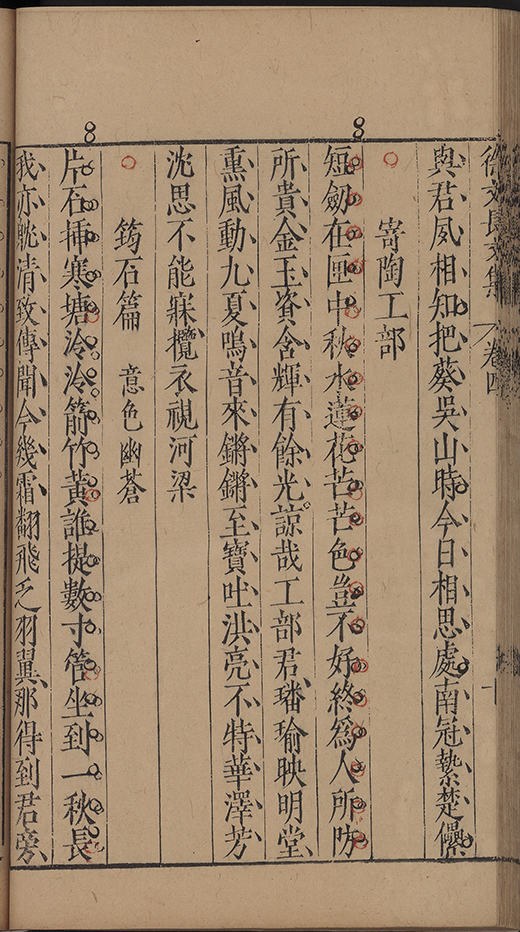 徐文長文集 卷四 十
與君夙相知把葵吳山時今日相思處南冠縶楚纍
寄陶工部
短劒在匣中秋水蓮花芒芒色豈不好終為人所防
所貴金玉資含輝有餘光諒哉工部君璠瑜映明堂
熏風動九夏鳴音來鏘鏘至寶吐洪亮不特華澤芳
沈思不能寐攬衣視河梁
筠石篇 意色幽蒼
片石揷寒塘泠泠箭竹黃誰提數寸管坐到一秋長
我亦眺清致傳聞今幾霜翻飛乏羽翼那得到君旁